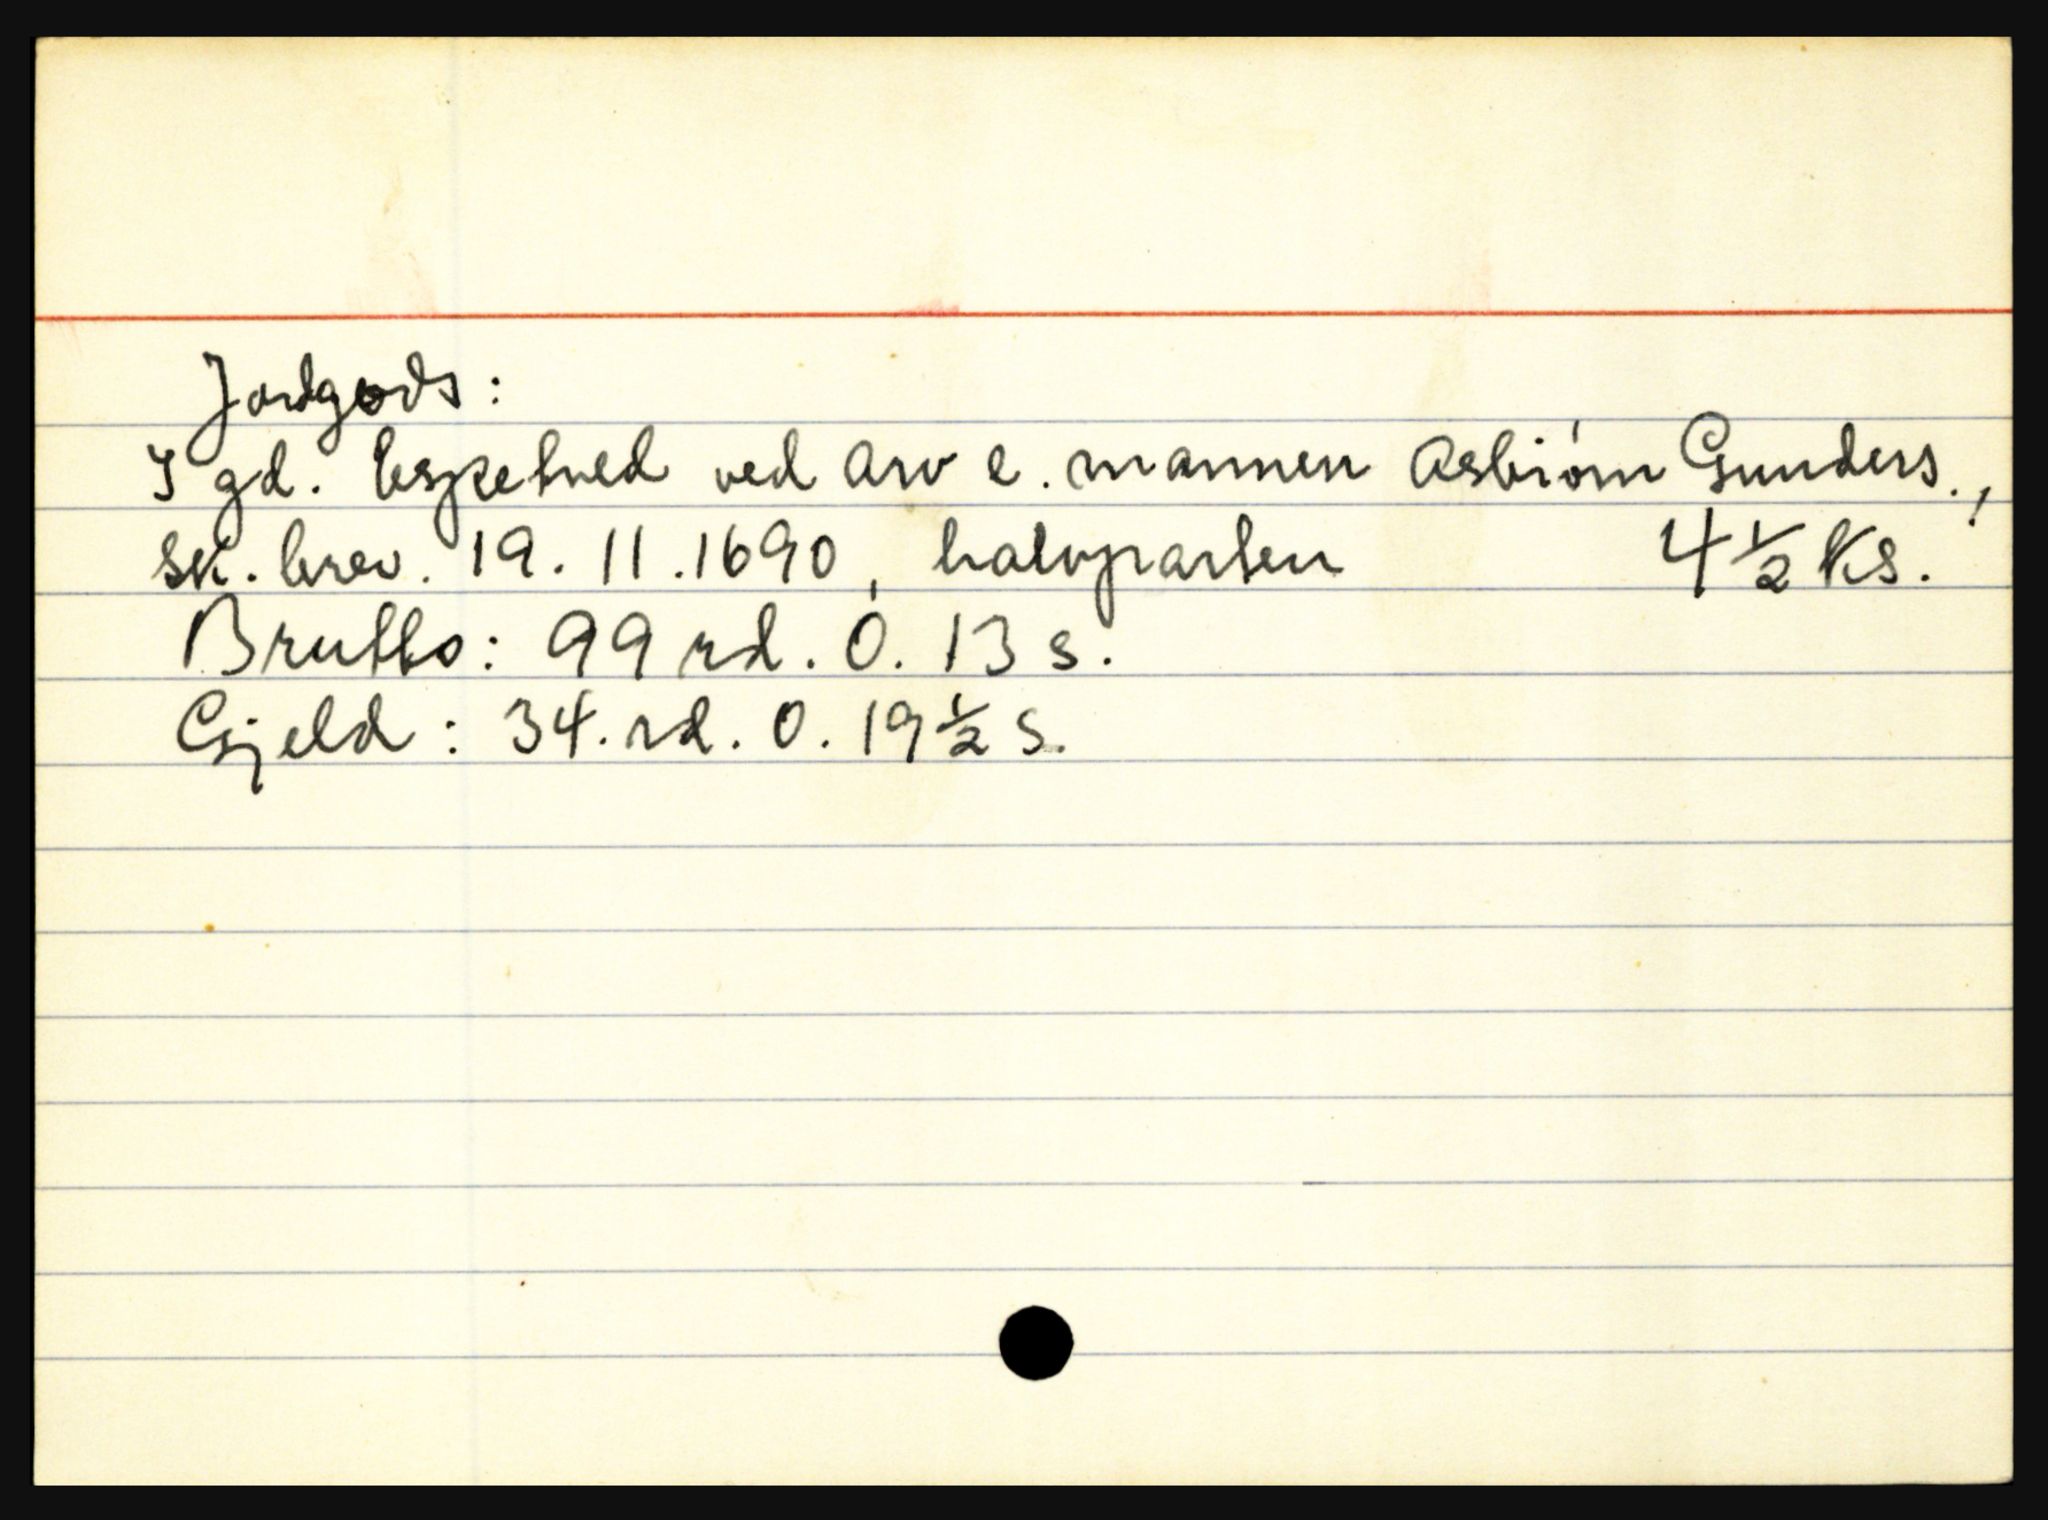 Jordgods:
I gd. Espetved ved arv e. mannen Asbiørn Gunders.,
sk. brev. 19. 11. 1690, halvparten 4 ½ ks.
Brutto: 99 rd. 0. 13 s.
Gjeld: 34. rd. 0. 19 ½ s.